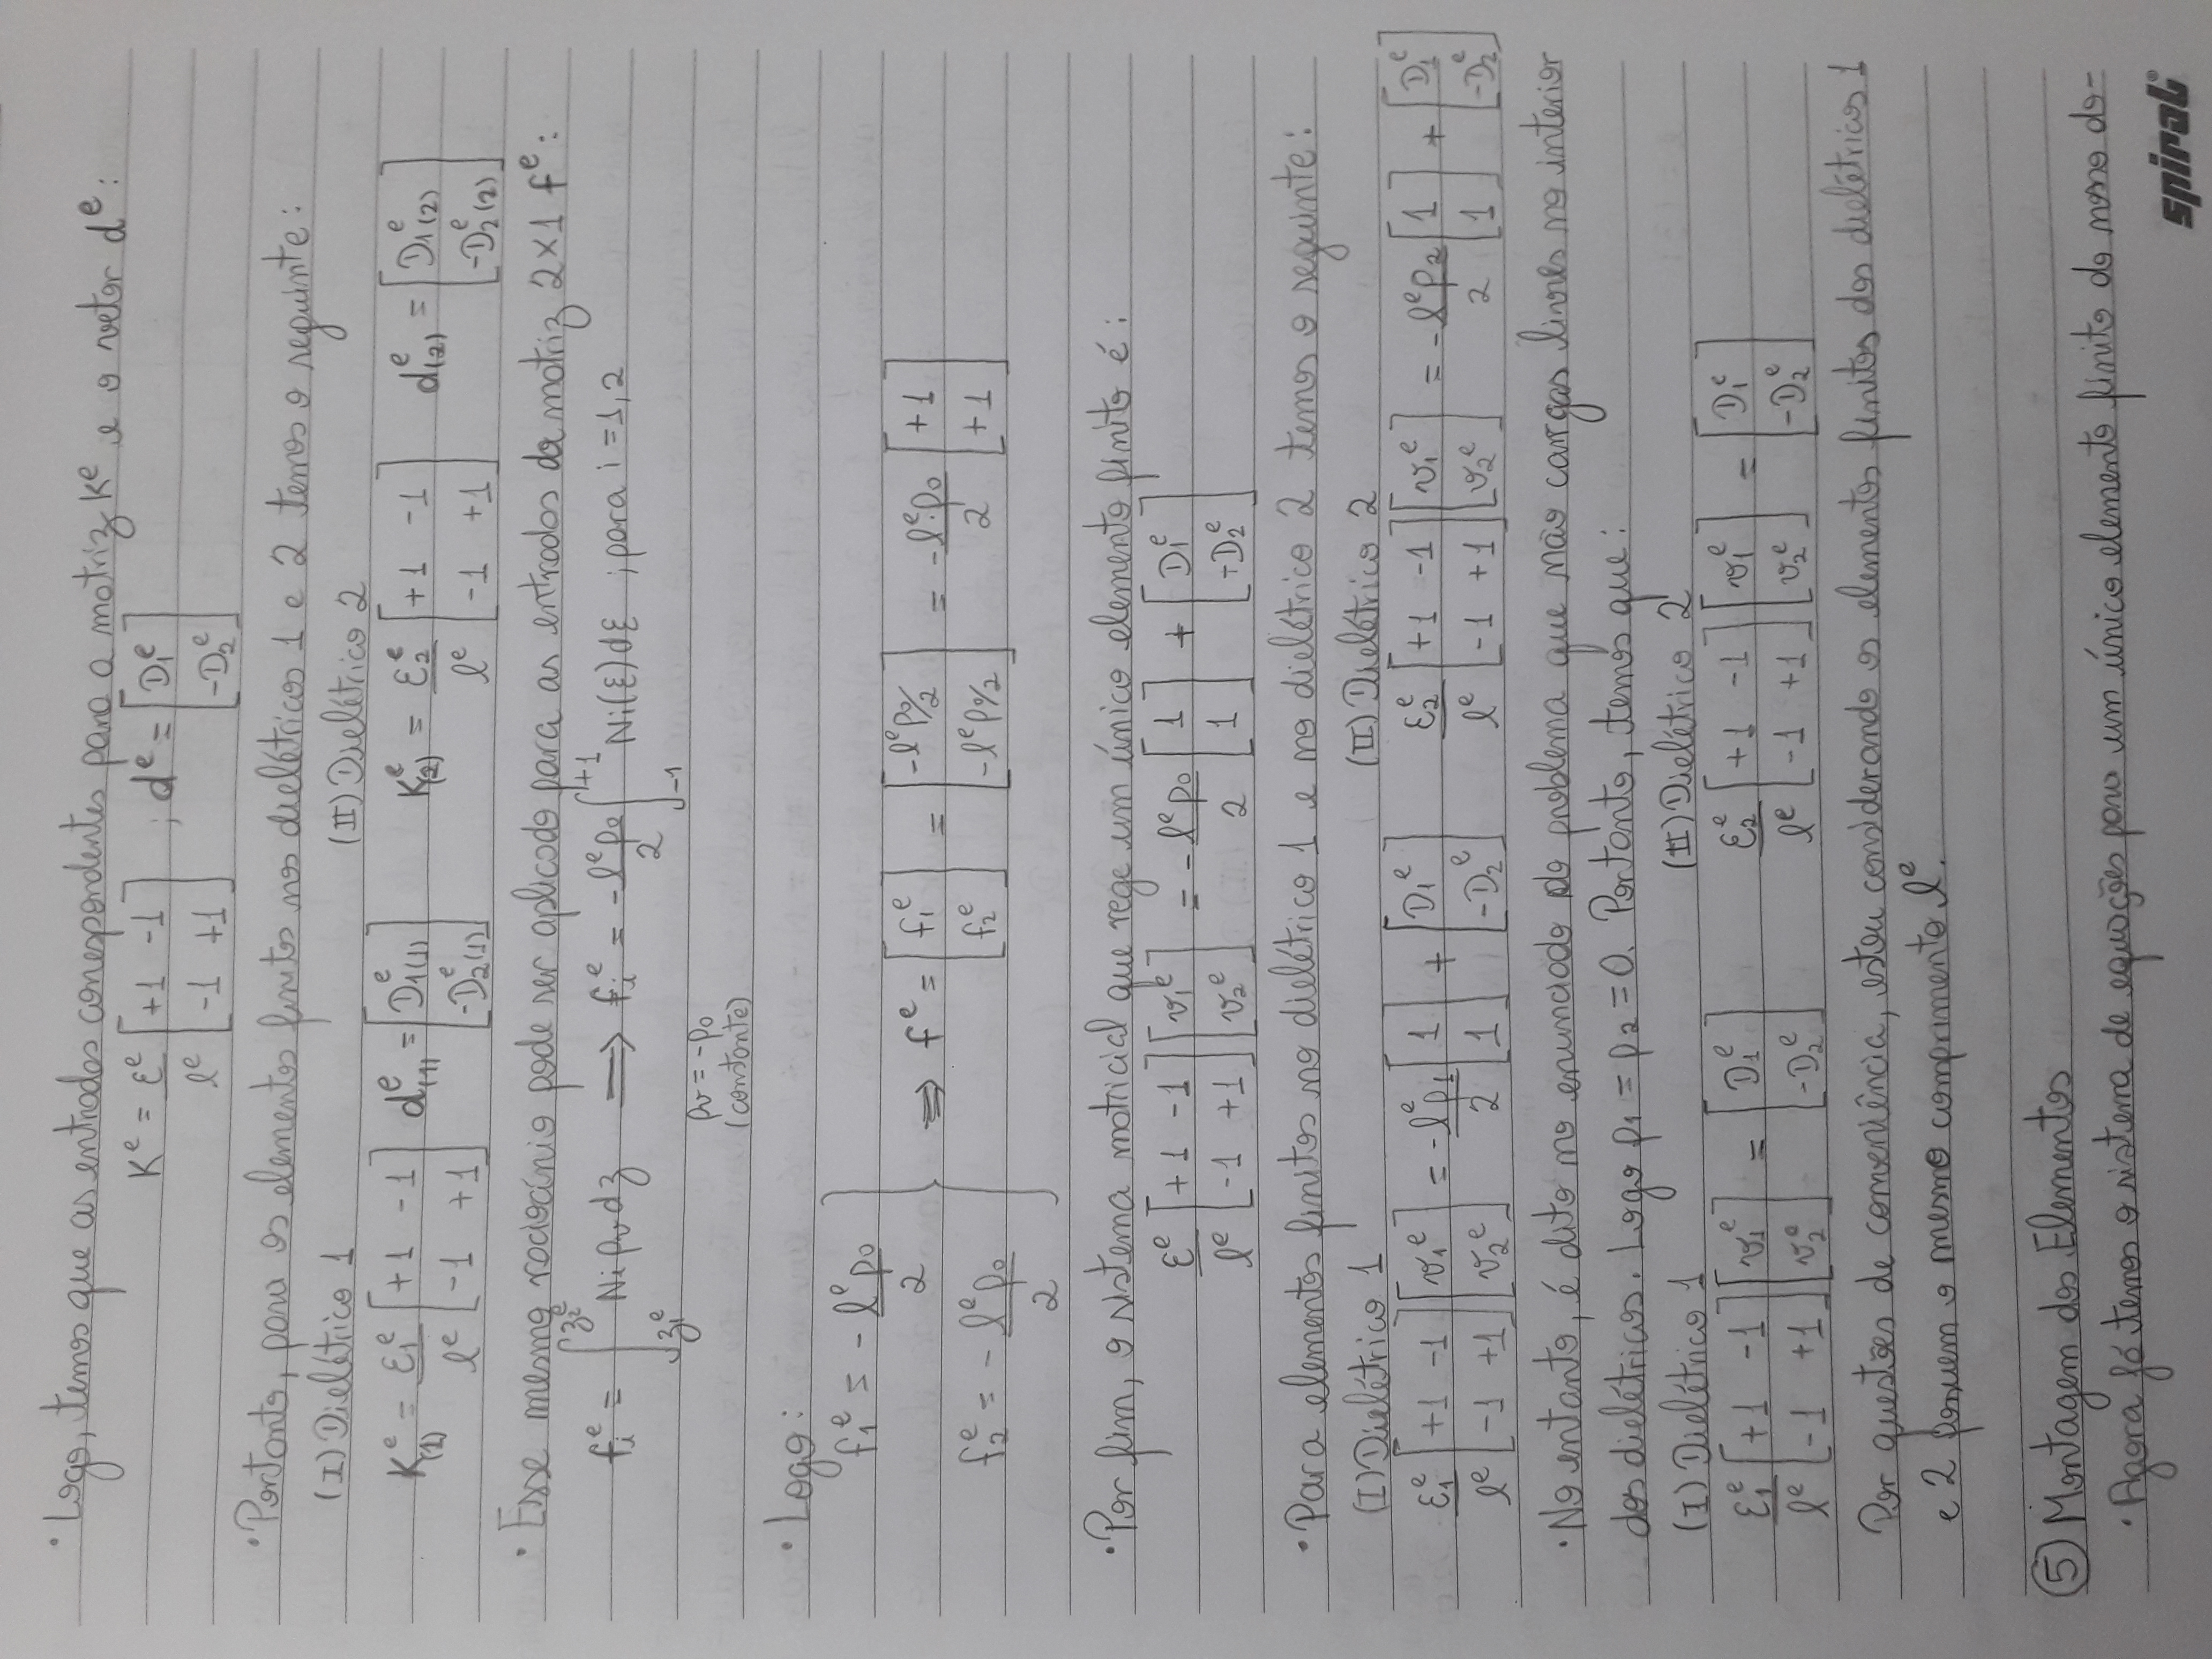 · Logo, temos que as entradas correspondentes para a matriz K^e e o vetor d^e:
K^e = ε^e/l^e [+1 -1; -1 +1] ; d^e = [D1^e; -D2^e]
· Portanto, para os elementos finitos nos dielétricos 1 e 2 temos o seguinte:
(I) Dielétrico 1 (II) Dielétrico 2
K(1)^e = ε1^e/l^e [+1 -1; -1 +1] d(1)^e = [D1(1)^e; -D2(1)^e] K(2)^e = ε2^e/l^e [+1 -1; -1 +1] d(2)^e = [D1(2)^e; -D2(2)^e]
· Esse mesmo raciocínio pode ser aplicado para as entradas da matriz 2×1 f^e:
fi^e = ∫_{z1^e}^{z2^e} Ni ρv dz ⟹ fi^e = -l^e ρ0/2 ∫_{-1}^{+1} Ni(ξ)dξ ; para i = 1, 2
ρv = -ρ0
(constante)
· Logo:
f1^e = -l^e ρ0/2
f2^e = -l^e ρ0/2
⟹ f^e = [f1^e; f2^e] = [-l^e ρ0/2; -l^e ρ0/2] = -l^e·ρ0/2 [+1; +1]
· Por fim, o sistema matricial que rege um único elemento finito é:
ε^e/l^e [+1 -1; -1 +1] [v1^e; v2^e] = -l^e ρ0/2 [1; 1] + [D1^e; -D2^e]
· Para elementos finitos no dielétrico 1 e no dielétrico 2 temos o seguinte:
(I) Dielétrico 1 (II) Dielétrico 2
ε1^e/l^e [+1 -1; -1 +1] [v1^e; v2^e] = -l^e ρ1/2 [1; 1] + [D1^e; -D2^e] ε2^e/l^e [+1 -1; -1 +1] [v1^e; v2^e] = -l^e ρ2/2 [1; 1] + [D1^e; -D2^e]
· No entanto, é dito no enunciado do problema que não cargas livres no interior
dos dielétricos. Logo ρ1 = ρ2 = 0. Portanto, temos que:
(I) Dielétrico 1 (II) Dielétrico 2
ε1^e/l^e [+1 -1; -1 +1] [v1^e; v2^e] = [D1^e; -D2^e] ε2^e/l^e [+1 -1; -1 +1] [v1^e; v2^e] = [D1^e; -D2^e]
Por questões de conveniência, estou considerando os elementos finitos dos dielétricos 1
e 2 possuem o mesmo comprimento l^e.
⑤ Montagem dos Elementos
· Agora já temos o sistema de equações para um único elemento finito do nosso do-
spiral®